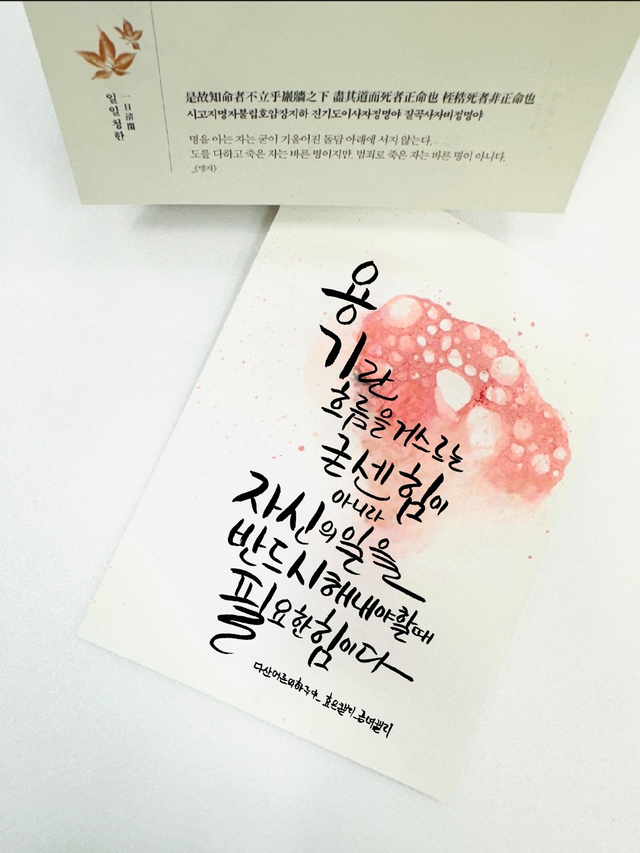 一日淸閒
일일청한
是故知命者不立乎巖牆之下 盡其道而死者正命也 桎梏死者非正命也
시고지명자불립호암장지하 진기도이사자정명야 질곡사자비정명야
명을 아는 자는 굳이 기울어진 돌담 아래에 서지 않는다.
도를 다하고 죽은 자는 바른 명이지만, 범죄로 죽은 자는 바른 명이 아니다.
_〈맹자〉
용
기란
흐름을 거스르는
굳센 힘이
아니라
자신의 일을
반드시 해내야 할 때
필요한 힘이다
다산 어른의 하루 中_ 효은캘리_